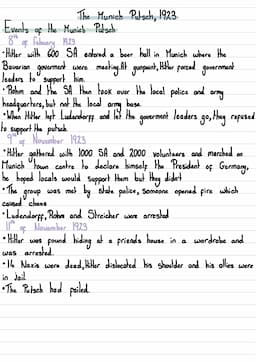 The Munich Putsch, 1923
Events of the Munich Putsch
8th of February 1923
•Hitler with 600 SA entered a beer hall in Munich where the
Bavarian government were meeting. At gunpoint, Hitler forced government
leaders to support him.
•Röhm and the SA then took over the local police and army
headquarters, but not the local army base.
•When Hitler left Ludendorff and let the government leaders go, they refused
to support the putsch.
9th of November 1923
•Hitler gathered with 1000 SA and 2000 volunteers and marched on
Munich town centre to declare himself the President of Germany,
he hoped locals would support them but they didn't
•The group was met by state police, someone opened fire which
caused chaos
•Ludendorff, Röhm and Streicher were arrested
11th of November 1923
•Hitler was found hiding at a friends house in a wardrobe and
was arrested.
•14 Nazis were dead, Hitler dislocated his shoulder and his allies were
in Jail
•The Putsch had failed.